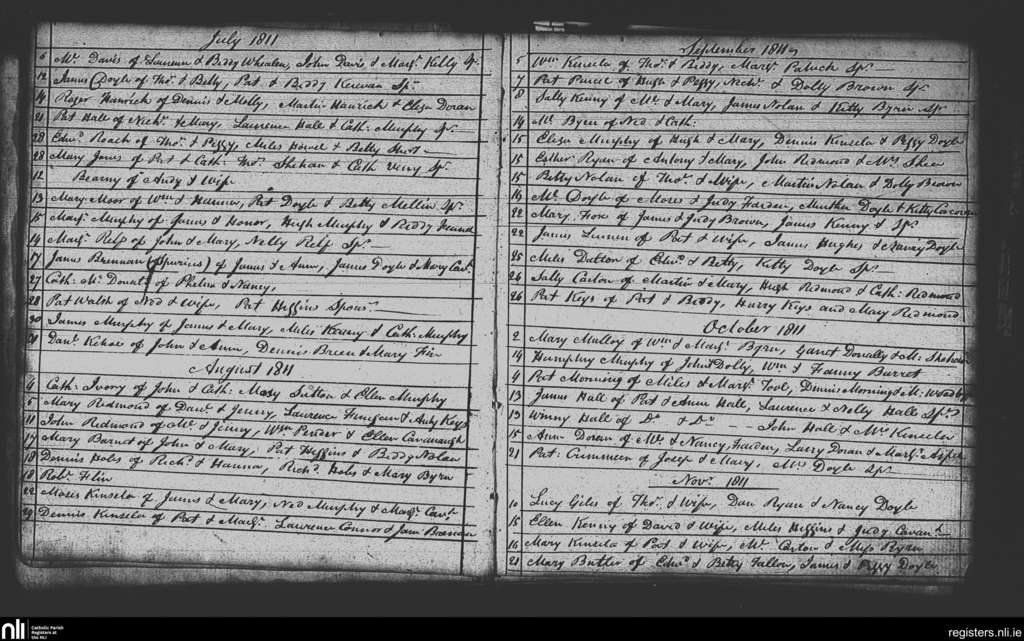 July 1811
6 Mr. Davis of Laurence & Biddy Whealan, John Davis & Marg. Kelly Sp.
12 James Doyle of Tho.s & Betty, Pat & Biddy Kerwan Sp.
14 Roger Hanrick of Dennis & Molly, Martin Hanrick & Eliza Doran
21 Pat Hall of Nich.s & Mary, Laurence Hall & Cath: Murphy Sp.
28 Edw.d Roach of Tho.s & Peggy, Miles & Betty
28 Mary Jones of Pat & Cath: Tho.s Shehan & Cath Sp.
12 Bearny of Andy & Wife
13 Mary Moor of Wm & Hanna, Pat Doyle & Betty Mellin Sp.
15 Marg.t Murphy of James & Honor, Hugh Murphy & Biddy
14 Marg.t Relp of John & Mary, Nelly Relp Sp.
17 James Brennan (Spurious) of James & Ann, James Doyle & Mary Cav.h
27 Cath: Mc Donal.d of Phelim & Nancy,
28 Pat Walsh of Ned & Wife, Pat Higgins
30 James Murphy of James & Mary, Miles Kenny & Cath: Murphy
21 Dan.l Kehoe of John & Ann, Dennis Breen & Mary
August 1811
4 Cath: Ivory of John & Cath: Mary Sutton & Ellen Murphy
5 Mary Redmond of Dan.l & Jenny, Laurence & Keys
11 John Redmond of Mr. & Jenny, Wm Pender & Ellen Cavanaugh
17 Mary Barnet of John & Mary, Pat Higgins & Biddy Nolan
18 Dennis Hobs of Rich.d & Hanna, Rich.d Hobs & Mary Byrn
18 Rob.t
22 Moses Kinsela of James & Mary, Ned Murphy & Marg.t Cav.h
29 Dennis Kinsela of Pat & Marg.t Lawrence Connor & Jane Brennan
September 1811
5 Wm Kinsela of Tho.s & Biddy, Mary Sp.
7 Pat Purcel of Hugh & Peggy, Nich.s & Dolly Brown Sp.
8 Sally Kenny of Mr. & Mary, James Nolan & Kitty Byrn Sp.
14 Mr. Byrn of Ned & Cath:
15 Eliza Murphy of Hugh & Mary, Dennis Kinsela & Peggy Doyle
15 Esther Ryan of Antony & Mary, John Redmond & Mrs Shea
15 Betty Nolan of Tho.s & Wife, Martin Nolan & Dolly Brown
16 Mr. Doyle of Moses & Judy Farden, Doyle & Kitty Corcoran
22 Mary Fox of James & Judy Brown, James Kenny & Sp.
22 James of Pat & Wife, James Hughes & Nancy Doyle
25 Miles Dutton of Edw.d & Betty, Kitty Doyle Sp.
26 Sally Carton of Martin & Mary, Hugh Redmond & Cath: Redmond
26 Pat Keys of Pat & Biddy, Harry Keys and Mary Redmond
October 1811
2 Mary Mulloy of Wm & Mary Byrn, Garret Donally & M:
14 Humphry Murphy of John & Dolly, Wm & Fanny Barret
4 Pat Morning of Miles & Marg.t Tool, Dennis Morning & M:
13 James Hall of Pat & Ann Hall, Laurence & Nelly Hall Sp.s
13 Winny Hall of Do. & Do. -- John Hall & Mrs Kinsela
15 Ann Doran of Mr. & Nancy Farden, Larry Doran & Marg.t
21 Pat: Crimmeen of Josep & Mary, Mrs Doyle Sp.
Nov.r 1811
10 Lucy Giles of Tho.s & Wife, Dan Ryan & Nancy Doyle
15 Ellen Kenny of David & Wife, Miles Higgins & Judy Cavan.h
16 Mary Kinsela of Pat & Wife, Mr. Carton & Miss Byrn
21 Mary Butler of Edw.d & Betty Fallon, James & Peggy Doyle
nli
Catholic Parish
Registers at
the NLI
registers.nli.ie